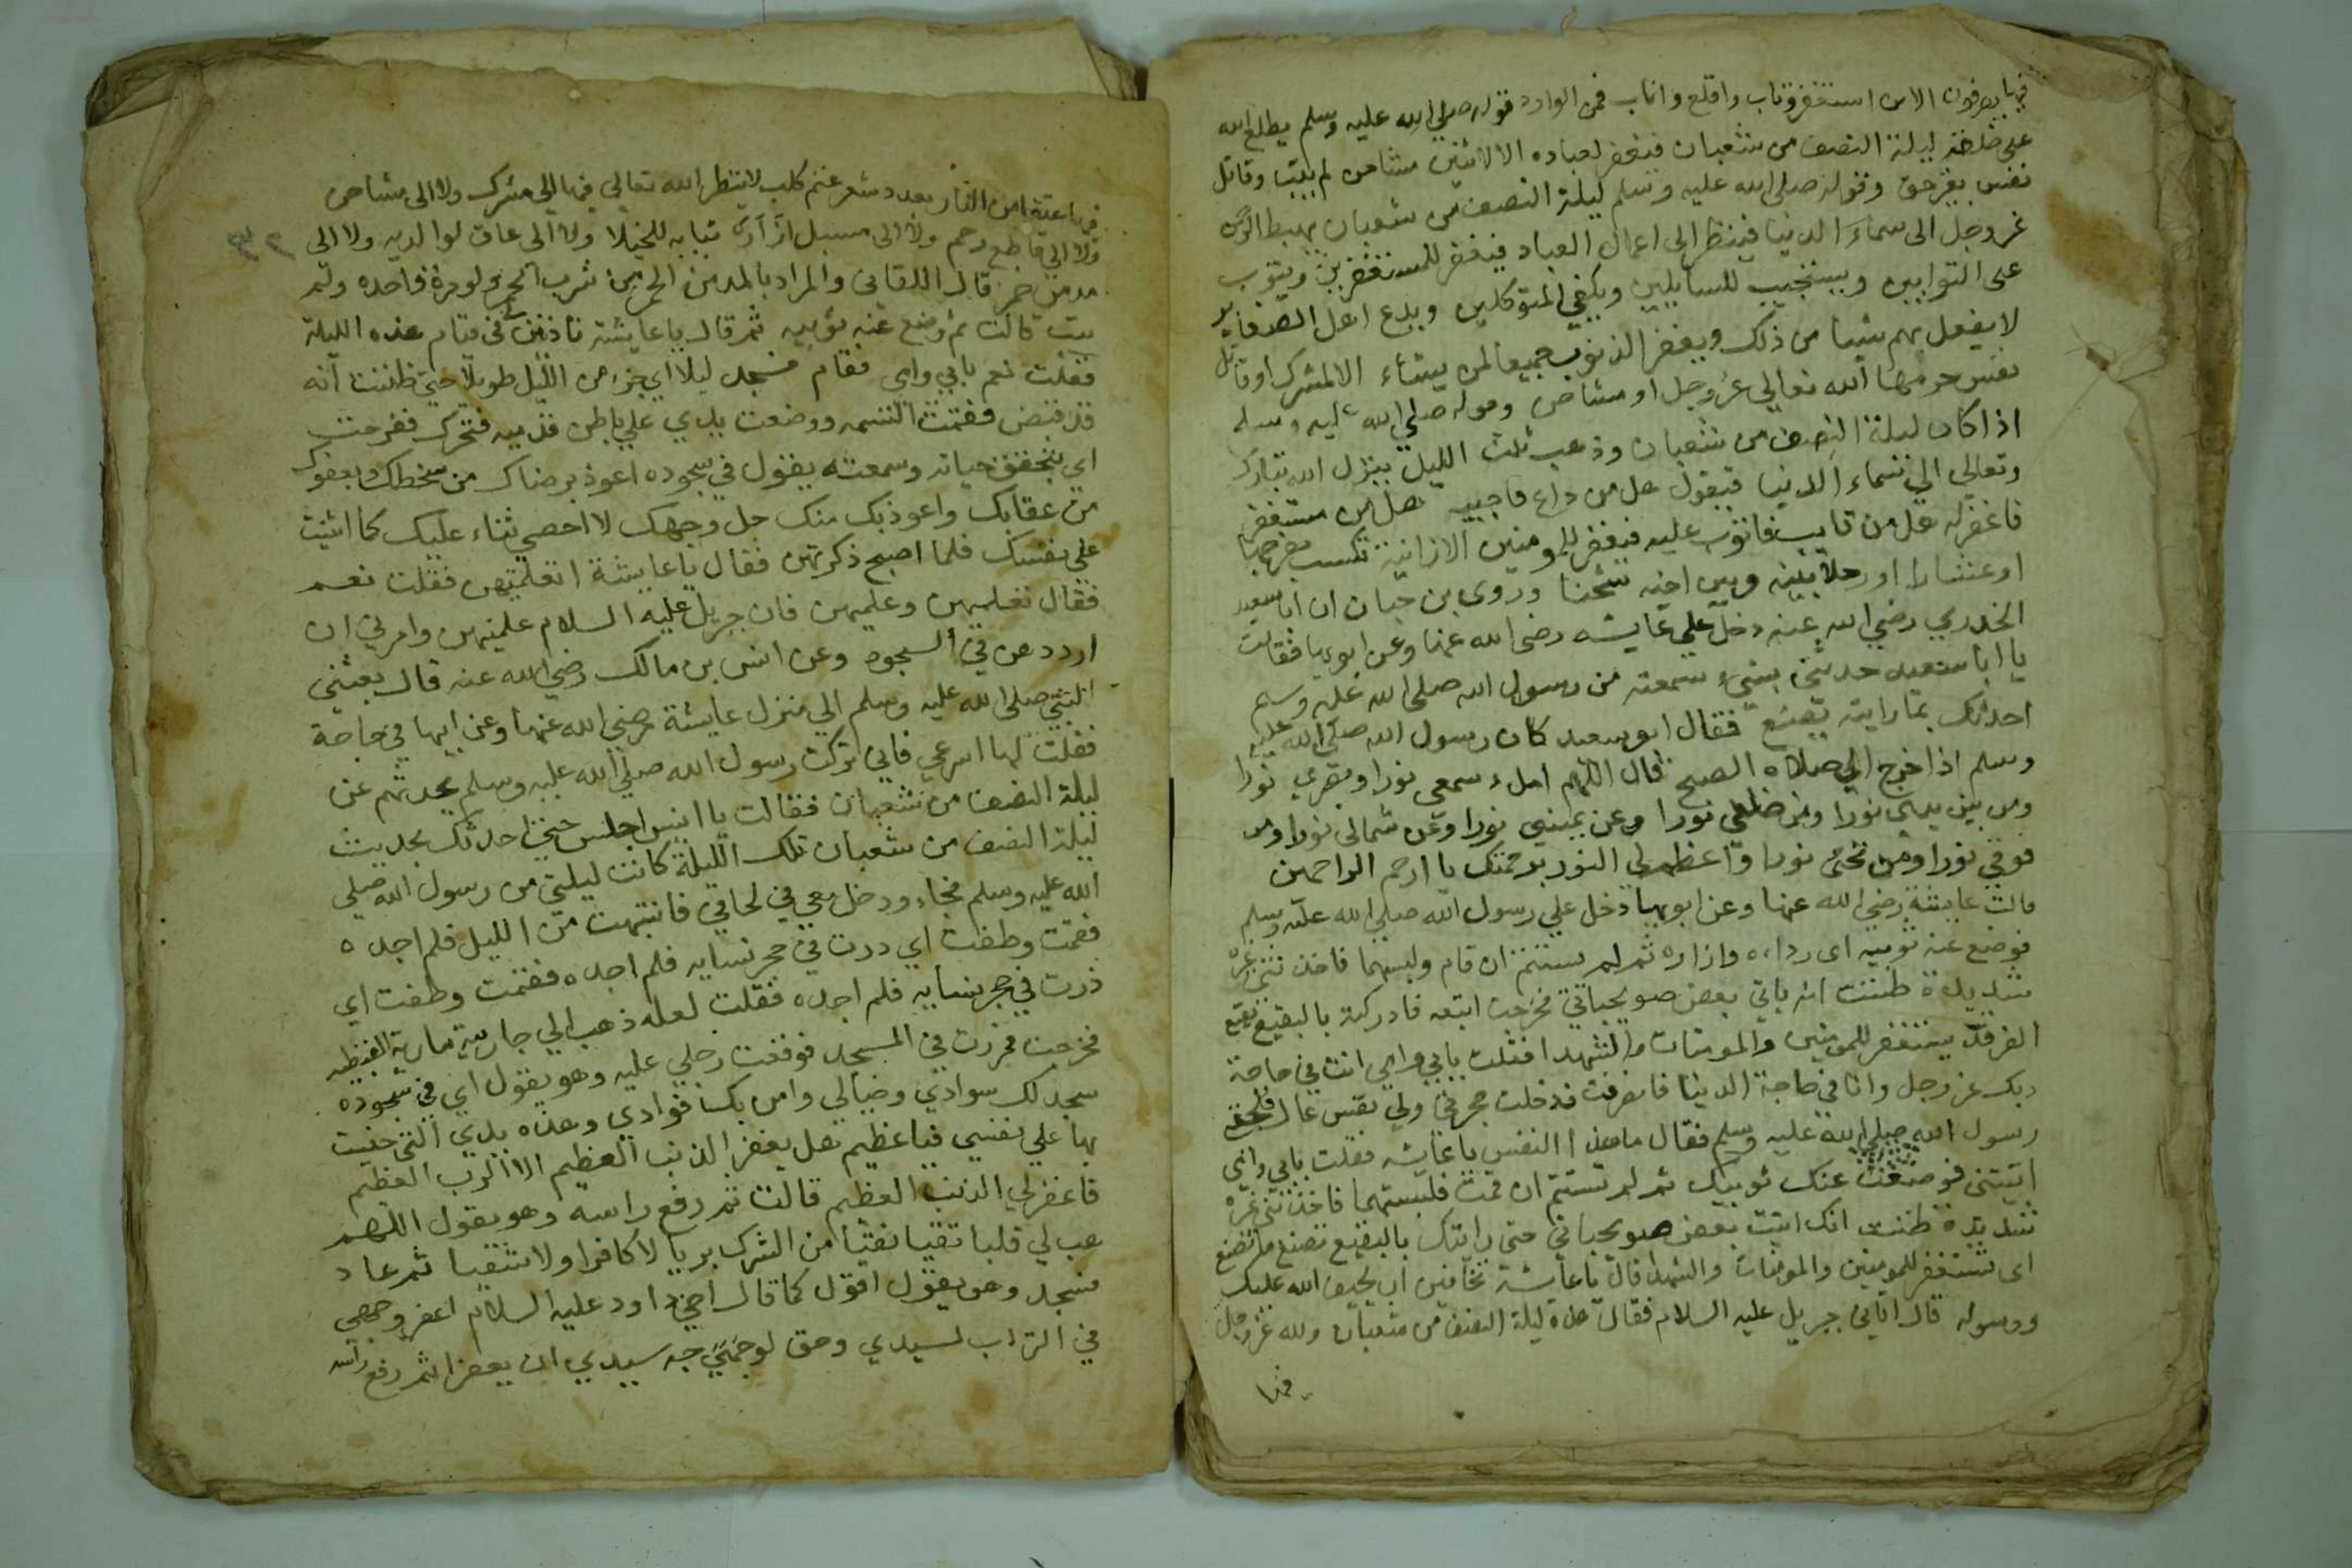 فيها يصرفون الا من استغفر وتاب واقلع واناب فمن الوارد قوله صلي الله عليه وسلم يطلع الله
على خلقه ليلة النصف من شعبان فيغفر لعباده الا لاثنين مشاحن لم يتب وقاتل
نفس بغير حق وقوله صلى الله عليه وسلم ليلة النصف من شعبان يهبط الرب
عز وجل الى سماء الدنيا فينظر الى اعمال العباد فيغفر للمستغفرين ويتوب
على التوابين ويستجيب للسايلين ويكفي المتوكلين ويدع اهل
لا يفعل بهم شيا من ذلك ويغفر الذنوب جميعا لمن يشاء الا لمشرك او قاتل
نفس حرمها الله تعالي عز وجل او مشاحن وقوله صلي الله عليه وسلم
اذا كان ليلة النصف من شعبان وذهب ثلث الليل ينزل الله تبارك
وتعالى الي سماء الدنيا فيقول هل من داع فاجيبه هل من مستغفر
فاغفر له هل من تايب فاتوب عليه فيغفر للمومنين الا زانية تكسب بفرجها
او عشارا او رجلا بينه وبين اخيه شحنا وروى بن حبان ان ابا سعيد
الخدري رضي الله عنه دخل علي عايشه رضى الله عنها وعن ابويها فقالت
يا ابا سعيد حدثني بشيء سمعته من رسول الله صلى الله عليه وسلم
احدثك بما رايته يصنع فقال ابو سعيد كان رسول الله صلى الله عليه
وسلم اذا خرج الي صلاة الصبح قال اللهم املء سمعي نورا وبصري نورا
ومن بين يدي نورا ومن خلفي نورا وعن يميني نورا وعن شمالى نورا ومن
فوقي نورا ومن تحتى نورا واعظم لي النور برحمتك يا ارحم الراحمين
قالت عايشة رضي الله عنها وعن ابويها دخل علي رسول الله صلي الله عليه وسلم
فوضع عنه ثوبيه اى رداءه وازاره ثم لم يستتم ان قام ولبسهما فاخذتني غيرة
شديدة ظننت انه ياتي بعض صويحباتي فخرجت اتبعه فادركته بالبقيع بقيع
الغرقد يستغفر للمومنين والمومنات والشهدا فقلت بابي وامي انت في حاجة
ربك عز وجل وانا في حاجة الدنيا فانصرفت فدخلت حجرتي ولي نفس عال فلحقني
رسول الله صلي الله عليه وسلم فقال ما هذا النفس يا عايشه فقلت بابي وامي
اتيتنى فوضعت عنك ثوبيك ثم لم تستتم ان قمت فلبستهما فاخذتني غيرة
شديدة ظننت انك اتيت بعض صويحباتي حتى رايتك بالبقيع تصنع ما تصنع
اى تستغفر للمومنين والمومنات والشهدا قال يا عايشة تخافين ان يحيف الله عليك
ورسوله قال اتاني جبريل عليه السلام فقال هذه ليلة النصف من شعبان ولله عز وجل
فيها
فيها عتقا من النار بعدد شعر غنم كلب لا ينظر الله تعالي فيها الي مشرك ولا الى مشاحن
ولا الى قاطع رحم ولا الى مسبل ثيابه للخيلا ولا الى عاق لوالديه ولا الى
مدمن خمر قال اللقاني والمراد بالمدمن الخمر من شرب الخمر ولو مرة واحده ولم
يتب قالت ثم وضع عنه ثوبيه ثم قال يا عايشة تاذنين لى في قيام هذه الليلة
فقلت نعم بابي وامى فقام فسجد ليلا اي جزء من الليل طويلا حتى ظننت انه
قد قبض فقمت التمسه ووضعت يدي علي باطن قدميه فتحرك ففرحت
اي بتحقق حياته وسمعته يقول في سجوده اعوذ برضاك من سخطك وبعفوك
من عقابك واعوذ بك منك جل وجهك لا احصي ثناء عليك كما اثنيت
على نفسك فلما اصبح ذكرتهن فقال يا عايشة اتعلمتهن فقلت نعم
فقال تعلميهن وعلميهن فان جبريل عليه السلام علمنيهن وامرني ان
ارددهن في السجود وعن انس بن مالك رضي الله عنه قال بعثنى
النبي صلى الله عليه وسلم الي منزل عايشة رضي الله عنها وعن ابيها في حاجة
فقلت لها اسرعي فاني تركت رسول الله صلي الله عليه وسلم يحدثهم عن
ليلة النصف من شعبان فقالت يا انيس اجلس حتى احدثك بحديث
ليلة النصف من شعبان تلك الليلة كانت ليلتي من رسول الله صلي
الله عليه وسلم فجاء ودخل معي في لحافي فانتبهت من الليل فلم اجده
فقمت وطفت اي درت في حجر نسايه فلم اجده فقمت وطفت اي
درت في حجر نسايه فلم اجده فقلت لعله ذهب الي جاريته مارية القبطيه
فخرجت فمررت في المسجد فوقعت رجلي عليه وهو يقول اي في سجوده
سجد لك سوادي وخيالى وامن بك فوادي وهذه يدي التي جنيت
بها علي نفسي فيا عظيم هل يغفر الذنب العظيم الا الرب العظيم
فاغفر لي الذنب العظيم قالت ثم رفع راسه وهو يقول اللهم
هب لي قلبا تقيا نقيا من الشرك بريا لا كافرا ولا شقيا ثم عاد
فسجد وهو يقول اقول كما قال اخي داود عليه السلام اعفر وجهي
في التراب لسيدي وحق لوجه سيدي ان يعفر ثم رفع راسه